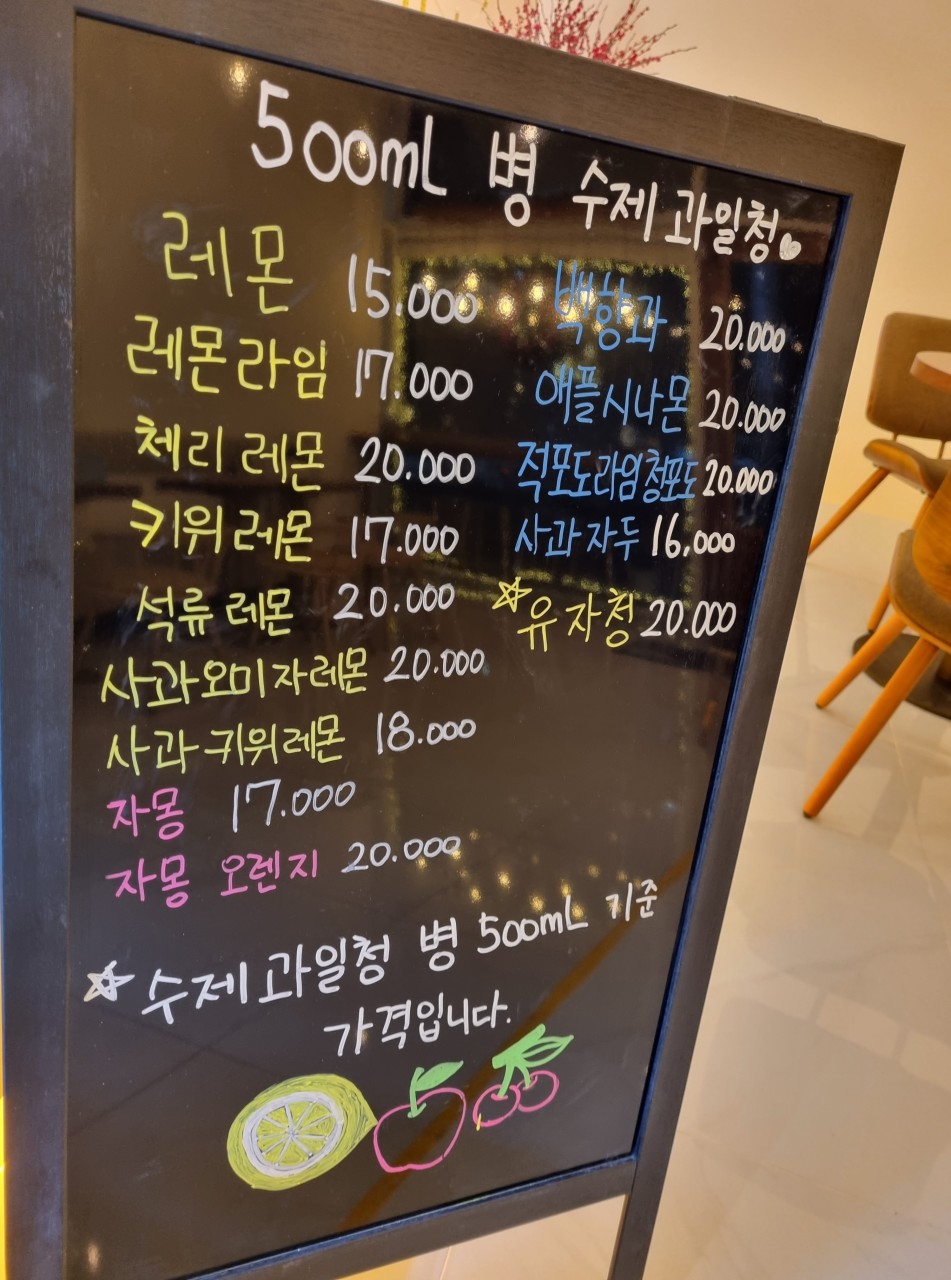 500mL 병 수제 과일청
레몬 15.000
레몬라임 17.000
체리 레몬 20.000
키위 레몬 17.000
석류 레몬 20.000
사과오미자레몬 20.000
사과키위레몬 18.000
자몽 17.000
자몽 오렌지 20.000
백향과 20.000
애플시나몬 20.000
적포도라임청포도 20.000
사과자두 16,000
☆유자청 20.000
☆수제과일청 병 500mL 기준
가격입니다.